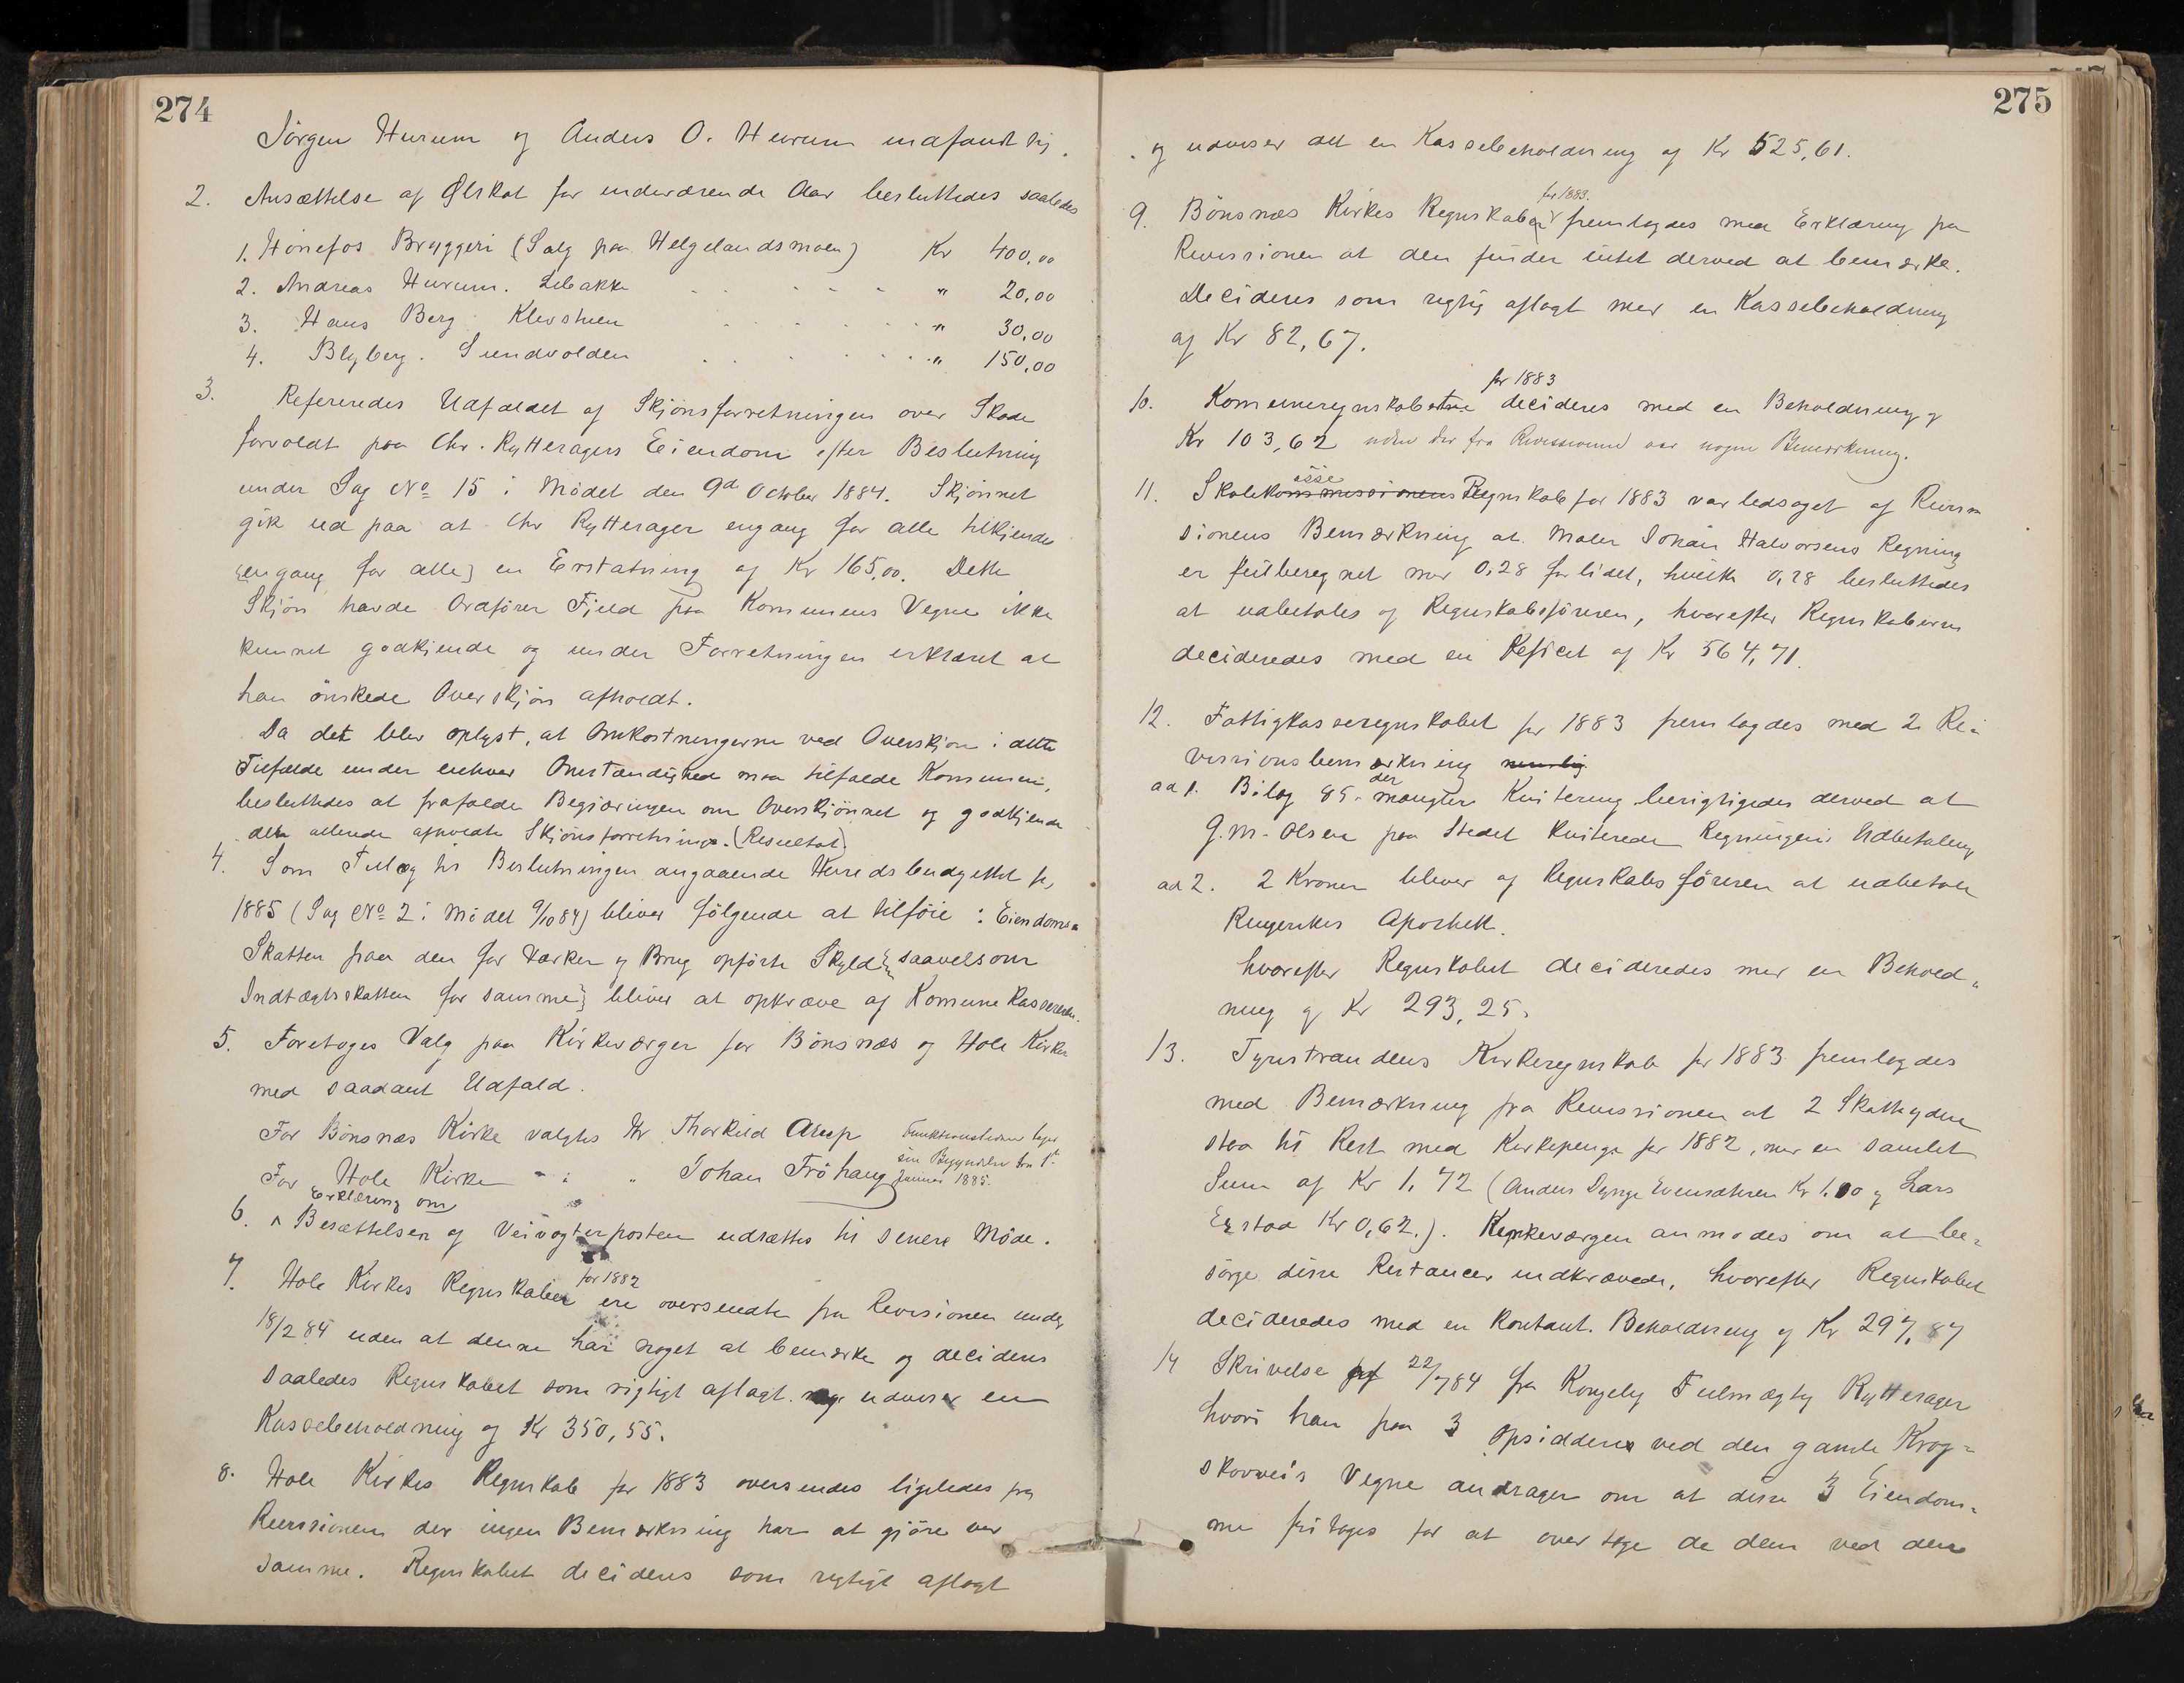 274
Jörgen Hurum og Anders O. Hurum indfandt sig.
2. Ansættelse af Ølskat for indeværende Aar besluttedes saaledes
1. Hönefos Bryggeri (Salg paa Helgelandsmoen) Kr 400,00
2. Andreas Hurum. Libakke " 20,00
3. Hans Berg. Klevstuen " 30,00
4. Blyberg. Sundvolden " 150,00
3. Refereredes Udfaldet af Skjönsforretningen over Skade
forvoldt paa Chr. Rytteragers Eiendom efter Beslutning
under Sag No 15 i Mödet den 9de October 1884. Skjönnet
gik ud paa at Chr Rytterager engang for alle tilkjendes
[engang for alle] en Erstatning af Kr 165,00. Dette
Skjön havde Ordförer Fjeld paa Komunens Vegne ikke
kunnet godkjende og under Forretningen erklæret at
han önskede Overskjön afholdt.
Da det blev oplyst, at Omkostningerne ved Overskjön i dette
Tilfælde under enhver Omstændighed maa tilfalde Komunen,
besluttedes at frafalde Begjæringen om Overskjönnet og godkjende
den allerede afholdte Skjönsforretnings. (Resultat)
4. Som Tillæg til Beslutningen angaaende Herredsbudgettet for
1885 (Sag No 2 i Mödet 9/10 84) bliver fölgende at tilföie: Eiendoms=
Skatten paa den for Værker og Brug opförte Skyld [saavelsom
Indtægtsskatten for samme] bliver at opkræve af Komunekassereren.
5. Foretoges Valg paa Kirkeværger for Bönsnæs og Hole Kirker
med saadant Udfald.
For Bönsnæs Kirke valgtes Hr Thorkild Asep Funktionstiden tager
sin Begyndelse den 1ste
For Hole Kirke - : " Johan Fröhaug Januar 1885.
Erklæring om
6. ^ Besættelsen af Veivogterposten udsættes til senere Möde.
for 1882
7. Hole Kirkes Regnskaber ere oversendte fra Revisionen under
18/2 84 uden at denne har noget at bemærke og decideres
saaledes Regnskabet som rigtigt aflagt. og udviser en
Kassebeholdning af Kr 350,55.
8. Hole Kirkes Regnskab for 1883 oversendes ligeledes fra
Revisionen der ingen Bemærkning har at gjöre ved
samme. Regnskabet decideres som rigtigt aflagt
275
og udviser det en Kassebeholdning af Kr 525,61.
for 1883.
9. Bönsnæs Kirkes Regnskaber fremlagdes med Erklæring fra
Revisionen at den finder intet derved at bemærke.
Decideres som rigtig aflagt med en Kassebeholdning
af Kr 82,67.
for 1883
10. Komuneregnskaberne decideres med en Beholdning af
Kr 103,62 uden der fra Revisionen var nogen Bemærkning.
asse
11. Skolekommissionens Regnskab for 1883 var ledsaget af Revi=
sionens Bemærkning at Maler Johan Halvorsens Regning
er feilberegnet med 0,28 for lidet, hvilke 0,28 besluttedes
at udbetales af Regnskabsföreren, hvorefter Regnskaberne
decideredes med en Deficit af Kr 564,71.
12. Fattigkasseregnskabet for 1883 fremlagdes med 2 Re=
visionsbemærkning nemlig
der
ad 1. Bilag 85. mangler Kvitering berigtigedes derved at
G. M. Olsen paa Stedet kviterede Regningens Udbetaling
ad 2. 2 Kroner bliver af Regnskabsföreren at udbetale
Ringerikes Apothek.
hvorefter Regnskabet decideredes med en Behold=
ning af Kr 293,25.
13. Tyristrandens Kirkeregnskab for 1883 fremlagdes
med Bemærkning fra Revisionen at 2 Skatteydere
staa til Rest med Kirkepenge for 1882, med en samlet
Sum af Kr 1,72 (Anders Evensæteren Kr 1,10 og Lars
Kr 0,62.). Kirkeværgen anmodes om at be=
sörge disse Restancer indkrævede, hvorefter Regnskabet
decideredes med en Kontant. Beholdning af Kr 297,87
14 Skrivelse af 22/7 84 fra Kongelig Fulmægtig Rytterager
hvori han paa 3 Opsiddere ved den gamle Krog=
skovveis Vegne andrager om at disse 3 Eiendom=
me fritages for at overtage de dem ved den